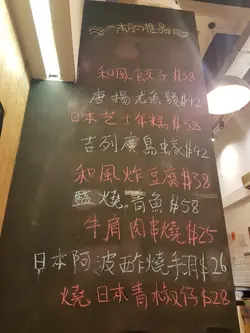 和風餃子$38
唐揚尤魚鬚$42
日本芝士年糕$38
吉列廣島蠔$42
和風炸豆腐$38
鹽燒青魚$58
牛肩肉串燒$25
日本阿波酢燒手羽$26
燒日本青椒仔$28